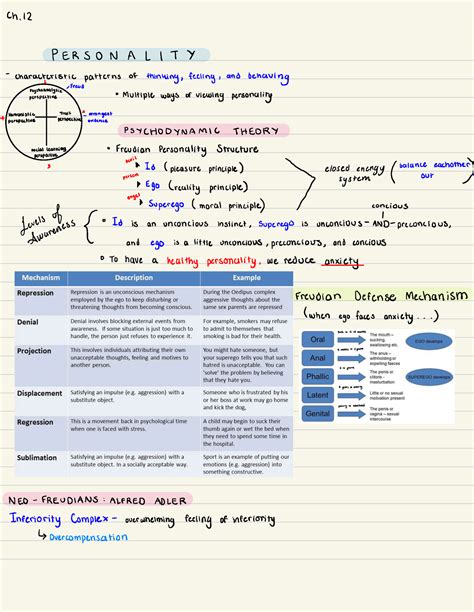 Ch.12
PERSONALITY
- characteristic patterns of thinking, feeling, and behaving
Freud
Psychoanalytic perspective
Humanistic perspective
Trait perspective
→ strongest evidence
social learning perspective
• Multiple ways of viewing personality
PSYCHODYNAMIC THEORY
• Freudian Personality Structure
devil
Id (pleasure principle)
person
Ego (reality principle)
angel
Superego (moral principle)
closed energy system
(balance eachother out
Levels of Awareness
concious
• Id is an unconcious instinct, Superego is unconcious -AND- preconcious,
and ego is a little unconcious, preconcious, and concious
• To have a healthy personality, we reduce anxiety
Mechanism Description Example
Repression Repression is an unconscious mechanism employed by the ego to keep disturbing or threatening thoughts from becoming conscious. During the Oedipus complex aggressive thoughts about the same sex parents are repressed
Denial Denial involves blocking external events from awareness. If some situation is just too much to handle, the person just refuses to experience it. For example, smokers may refuse to admit to themselves that smoking is bad for their health.
Projection This involves individuals attributing their own unacceptable thoughts, feeling and motives to another person. You might hate someone, but your superego tells you that such hatred is unacceptable. You can 'solve' the problem by believing that they hate you.
Displacement Satisfying an impulse (e.g. aggression) with a substitute object. Someone who is frustrated by his or her boss at work may go home and kick the dog,
Regression This is a movement back in psychological time when one is faced with stress. A child may begin to suck their thumb again or wet the bed when they need to spend some time in the hospital.
Sublimation Satisfying an impulse (e.g. aggression) with a substitute object. In a socially acceptable way. Sport is an example of putting our emotions (e.g. aggression) into something constructive.
Freudian Defense Mechanism
(when ego faces anxiety...)
Oral The mouth – sucking, swallowing etc. EGO develops
Anal The anus – withholding or expelling faeces
Phallic The penis or clitoris - masturbation SUPEREGO develops
Latent Little or no sexual motivation present
Genital The penis or vagina – sexual intercourse
NEO-FREUDIANS: ALFRED ADLER
Inferiority Complex - overwhelming feeling of inferiority
↳ Overcompensation